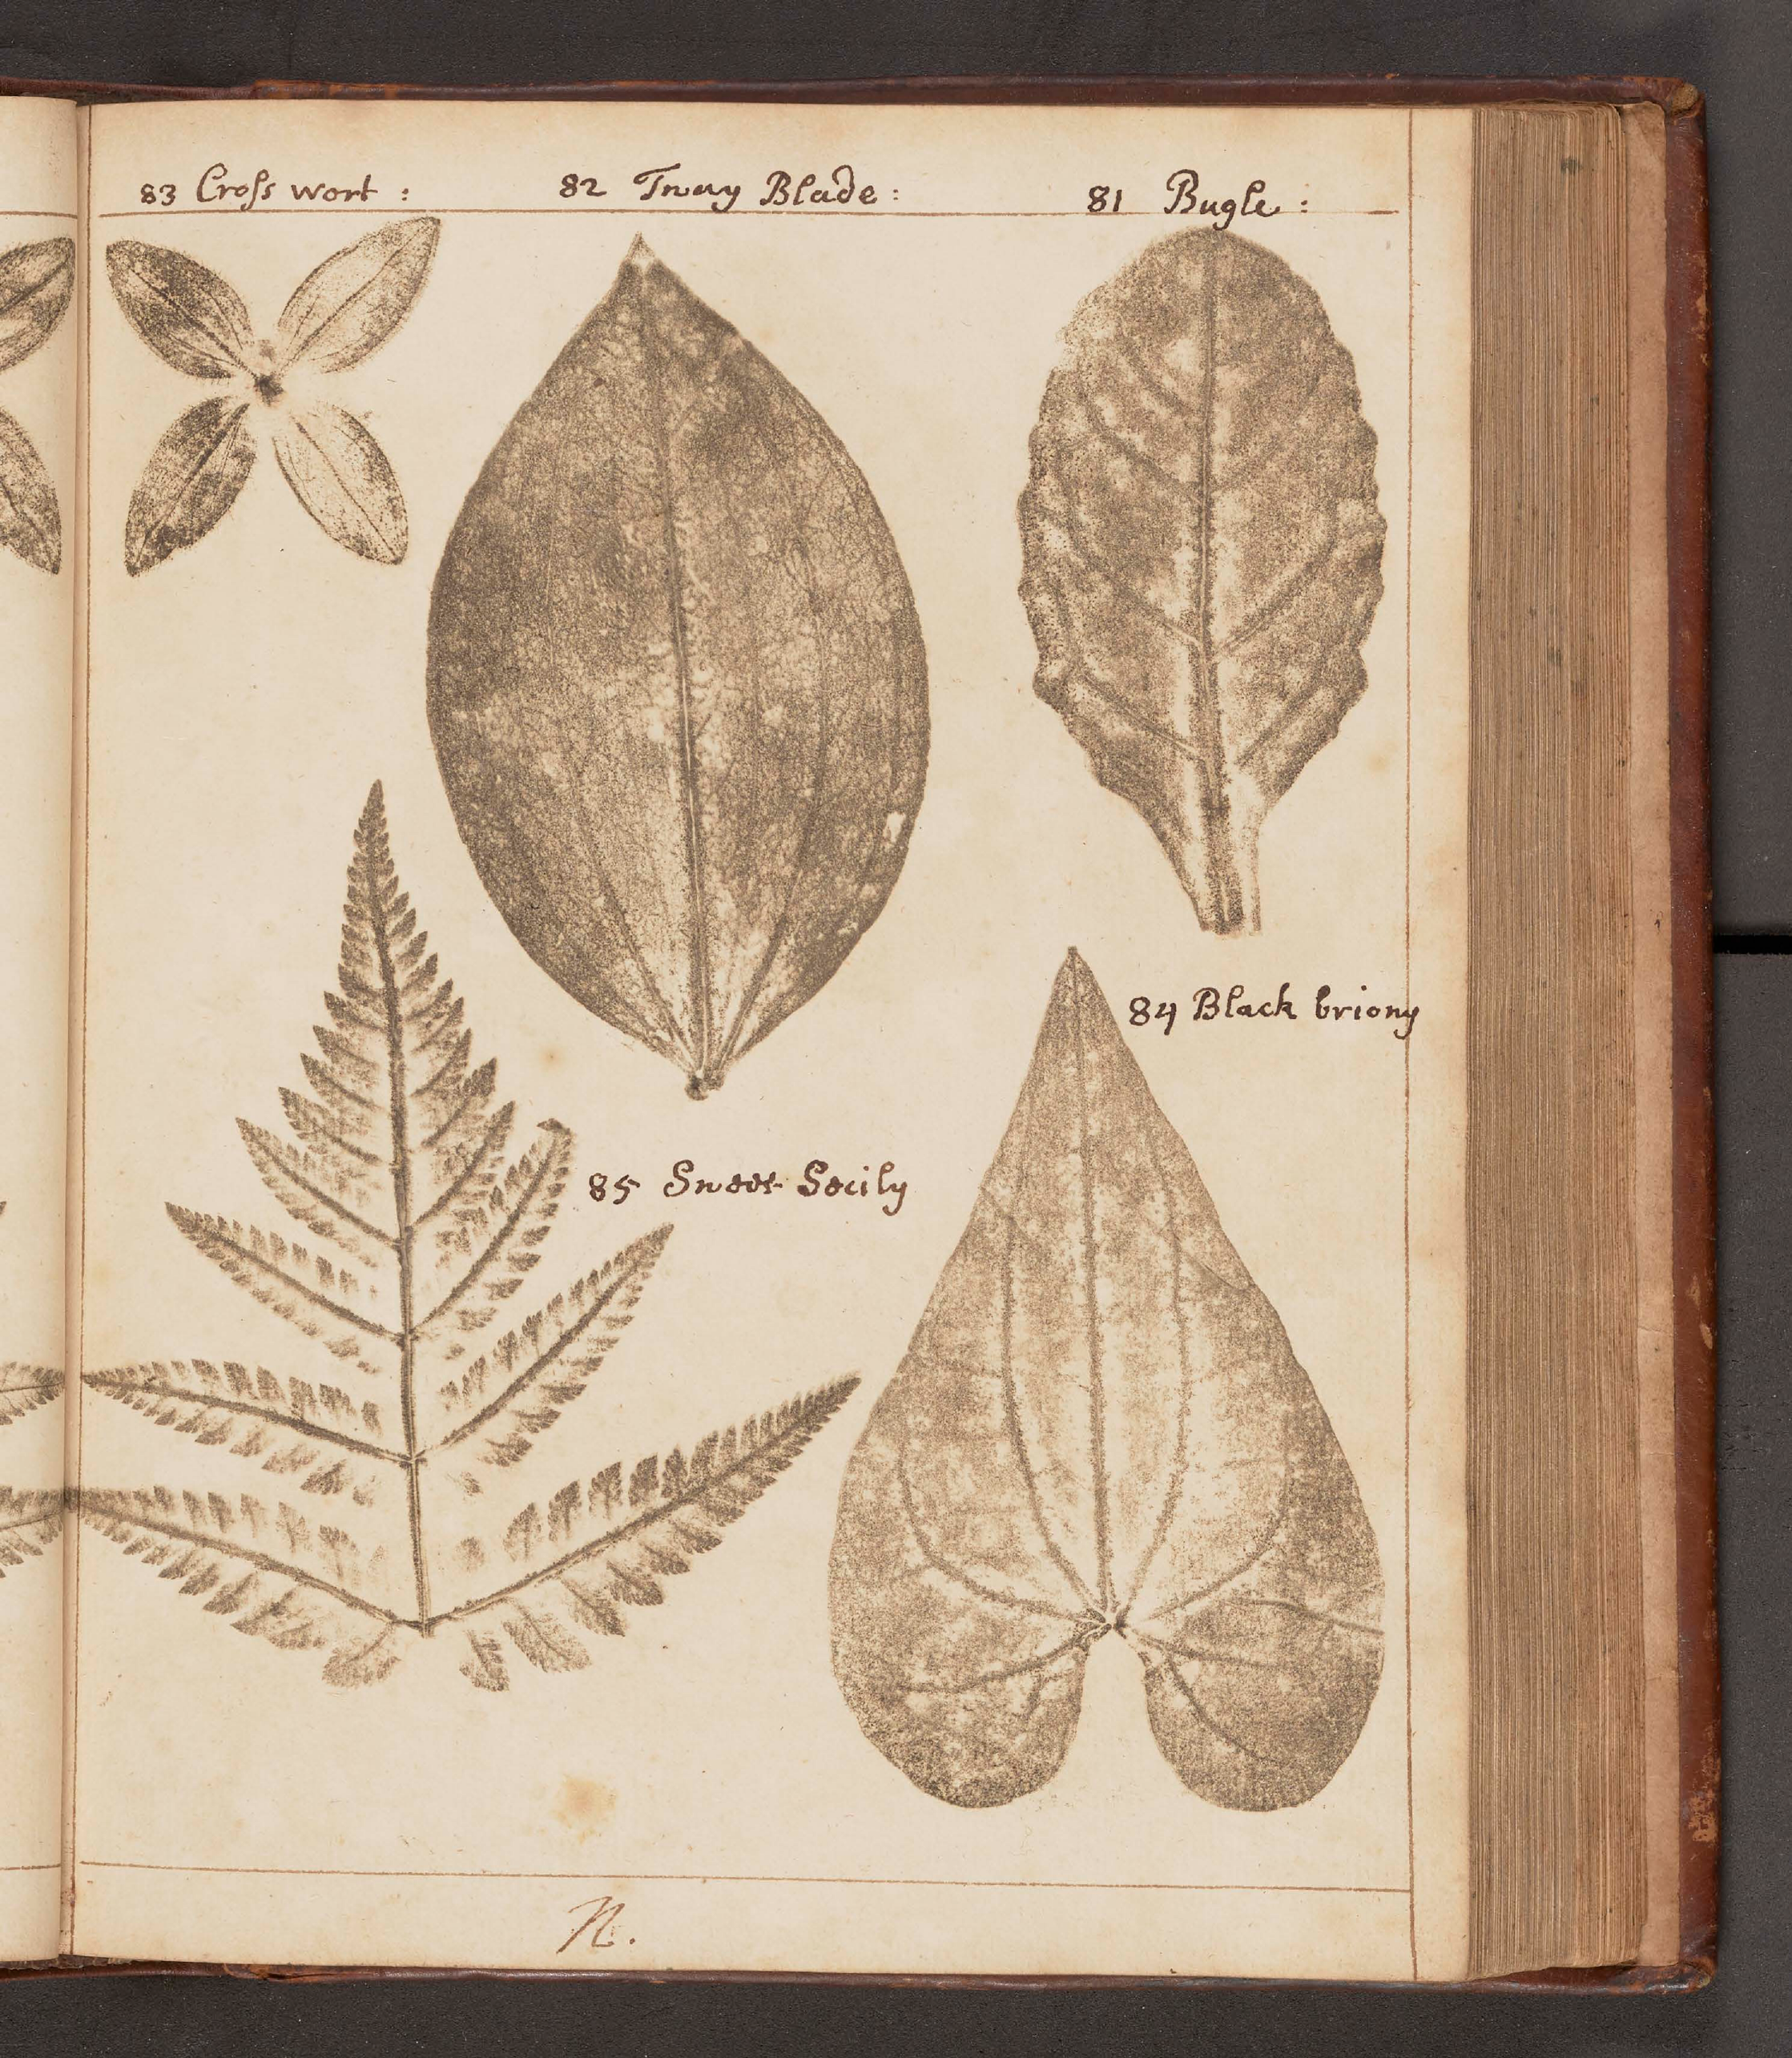 83 Croſs wort :
82 Tway Blade :
81 Bugle :
84 Black briony
85 Sweet Secily
N.